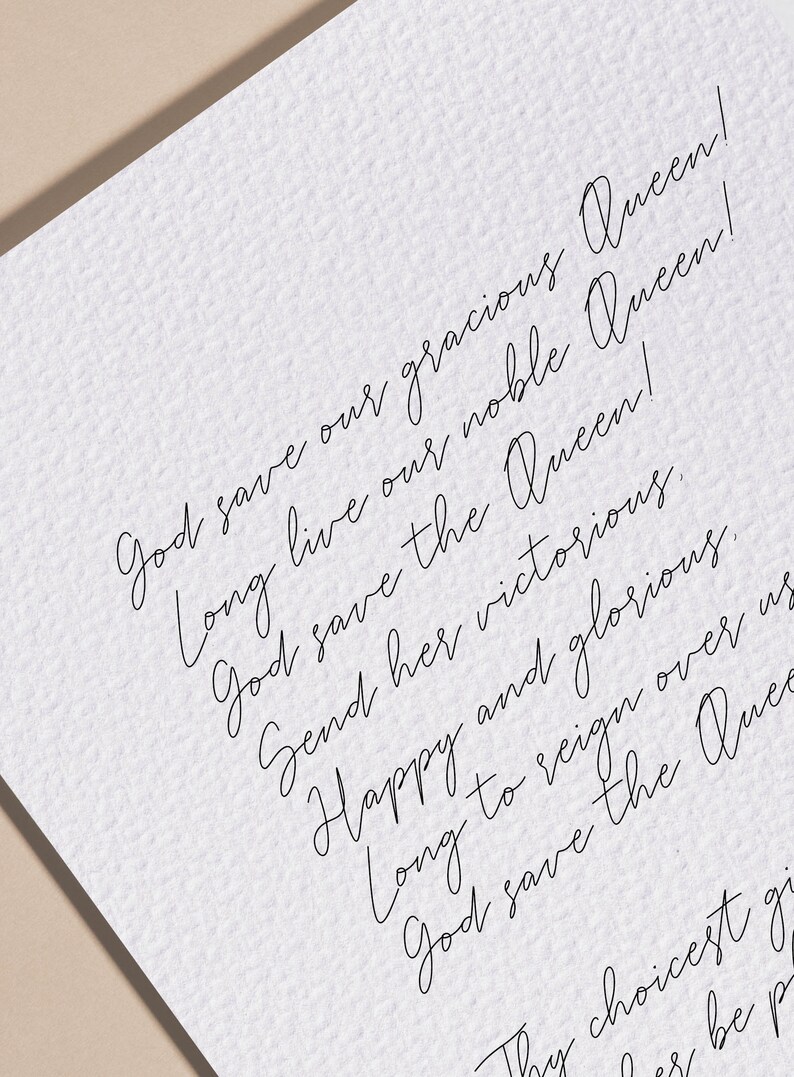 God save our gracious Queen!
Long live our noble Queen!
God save the Queen!
Send her victorious,
Happy and glorious,
Long to reign over us
God save the Quee
Thy choicest gi
her be p